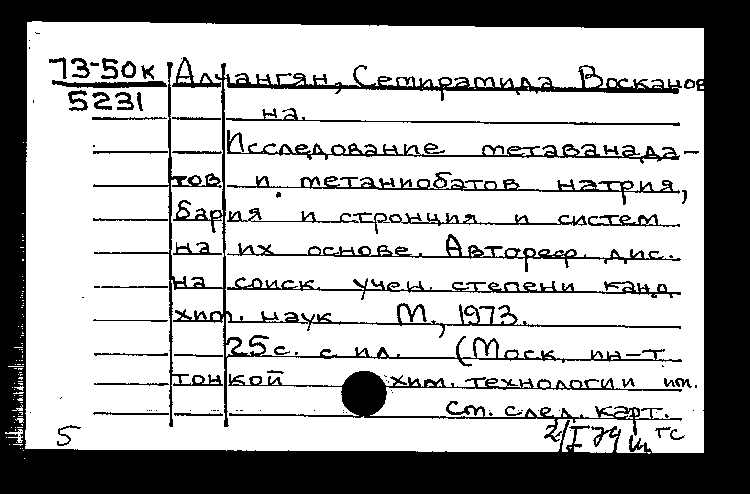 73-50к Алчангян, Семирамида Восканов
5231 на.
Исследование метаванада-
тов и метаниобатов натрия,
бария и стронция и систем
на их основе. Автореф. дис.
на соиск. учен. степени канд.
хим. наук М., 1973.
25с. с ил. (Моск. ин-т
тонкой хим. технологии им.
См. след. карт.
5